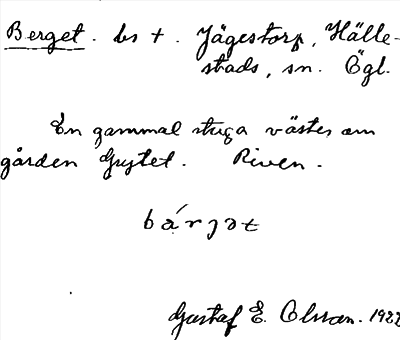 Berget. bs †. Jägestorp, Hälle-
stads, sn. Ögl.
En gammal stuga väster om
gården Grytet. Riven.
bárjət
Gustaf E. Olsson. 1922